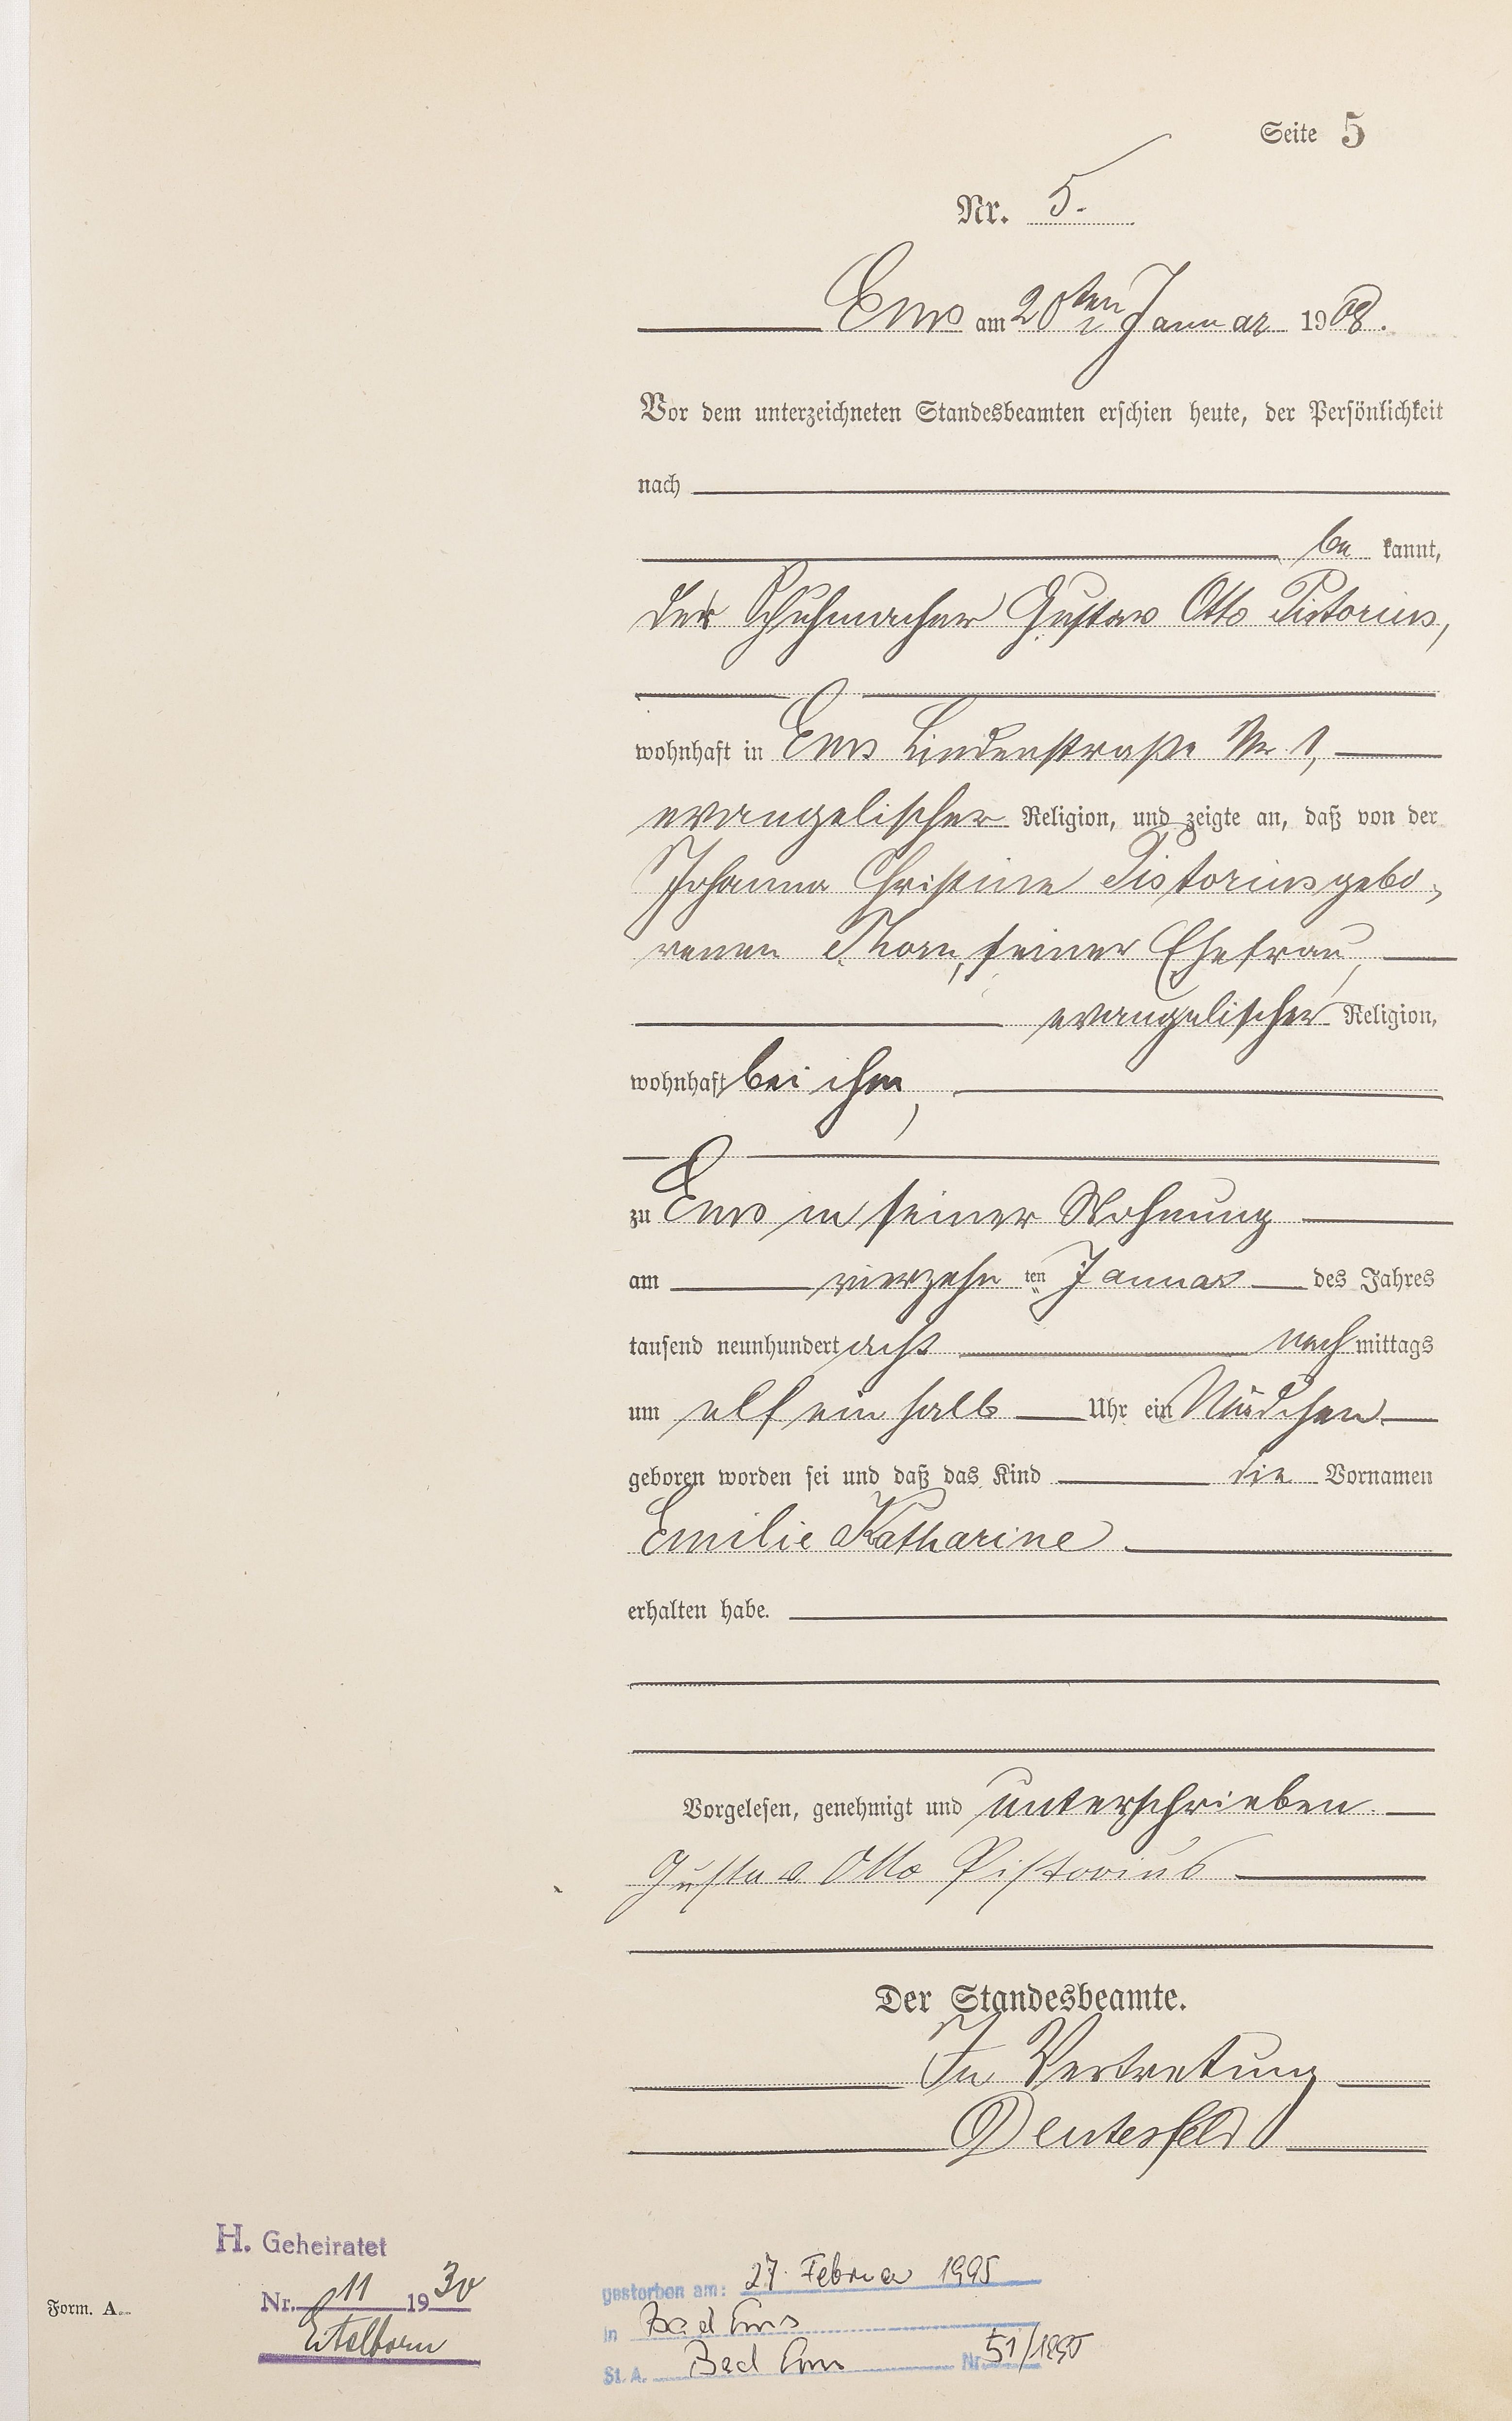 Seite 5
Nr. 5.
Ems am 20ten Januar 1908.
Vor dem unterzeichneten Standesbeamten erschien heute, der Persönlichkeit
nach
be kannt,
der Schuhmacher Gustav Otto Pistorius,
wohnhaft in Ems Lindenstraße Nr. 1,
evangelischer Religion, und zeigte an, daß von der
Johanna Christine Pistorius gebo-
renen Thorn, seiner Ehefrau,
evangelischer Religion,
wohnhaft bei ihm,
zu Ems in seiner Wohnung
am vierzehn ten Januar des Jahres
tausend neunhundert acht nach mittags
um elf ein halb Uhr ein Mädchen
geboren worden sei und daß das Kind die Vornamen
Emilie Katharine
erhalten habe.
Vorgelesen, genehmigt und unterschrieben.
Gustav Otto Pistorius
Der Standesbeamte.
In Vertretung
Deutesfeld
H. Geheiratet
Nr. 11 1930
Eitelborn
Form. A.
gestorben am: 27. Februar 1995
in Bad Ems
St. A. Bad Ems Nr. 51/1995